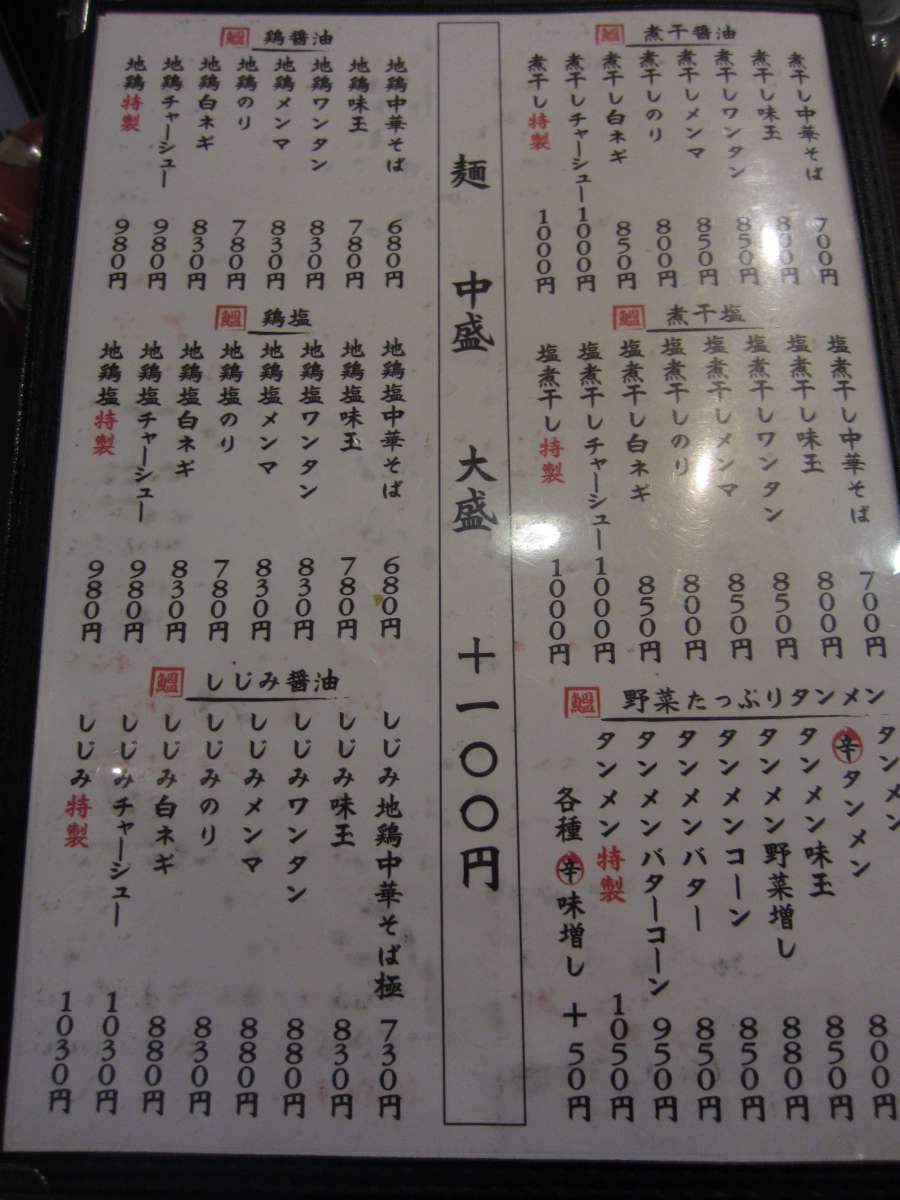 鰮 煮干醤油
煮干し中華そば 700円
煮干し味玉 800円
煮干しワンタン 850円
煮干しメンマ 850円
煮干しのり 800円
煮干し白ネギ 850円
煮干しチャーシュー 1000円
煮干し特製 1000円
鰮 煮干塩
塩煮干し中華そば 700円
塩煮干し味玉 800円
塩煮干しワンタン 850円
塩煮干しメンマ 850円
塩煮干しのり 800円
塩煮干し白ネギ 850円
塩煮干しチャーシュー 1000円
塩煮干し特製 1000円
鰮 野菜たっぷりタンメン
タンメン 800円
辛タンメン 850円
タンメン味玉 880円
タンメン野菜増し 850円
タンメンコーン 850円
タンメンバター 850円
タンメンバターコーン 950円
タンメン特製 1050円
各種辛味増し +50円
麺 中盛 大盛 +一〇〇円
鰮 鶏醤油
地鶏中華そば 680円
地鶏味玉 780円
地鶏ワンタン 830円
地鶏メンマ 830円
地鶏のり 780円
地鶏白ネギ 830円
地鶏チャーシュー 980円
地鶏特製 980円
鰮 鶏塩
地鶏塩中華そば 680円
地鶏塩味玉 780円
地鶏塩ワンタン 830円
地鶏塩メンマ 830円
地鶏塩のり 780円
地鶏塩白ネギ 830円
地鶏塩チャーシュー 980円
地鶏塩特製 980円
鰮 しじみ醤油
しじみ地鶏中華そば極 730円
しじみ味玉 830円
しじみワンタン 880円
しじみメンマ 880円
しじみのり 830円
しじみ白ネギ 880円
しじみチャーシュー 1030円
しじみ特製 1030円